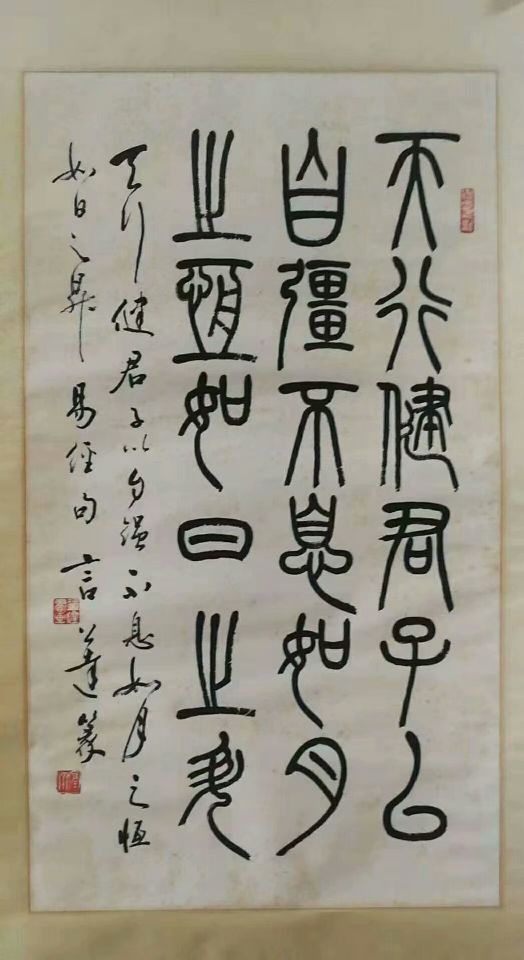 天行健君子以
自彊不息如月
之恆如日之升
天行健君子以自强不息如月之恒
如日之昇 易经句 言 篆